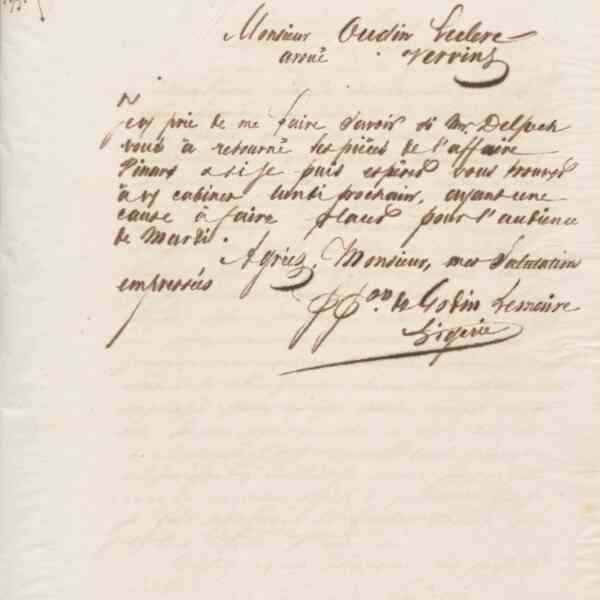 Monsieur Oudin Leclere
avoué Vervins
Je vs prie de me faire savoir si Mr. Delpech
vous à retourné les pièces de l'affaire
et si je puis espérer vous trouver
à vs cabinet lundi prochain, ayant une
cause à faire placer pour l'audience
de Mardi.
Agréez, Monsieur, mes Salutation
empressées
PPon. de Godin Lemaire